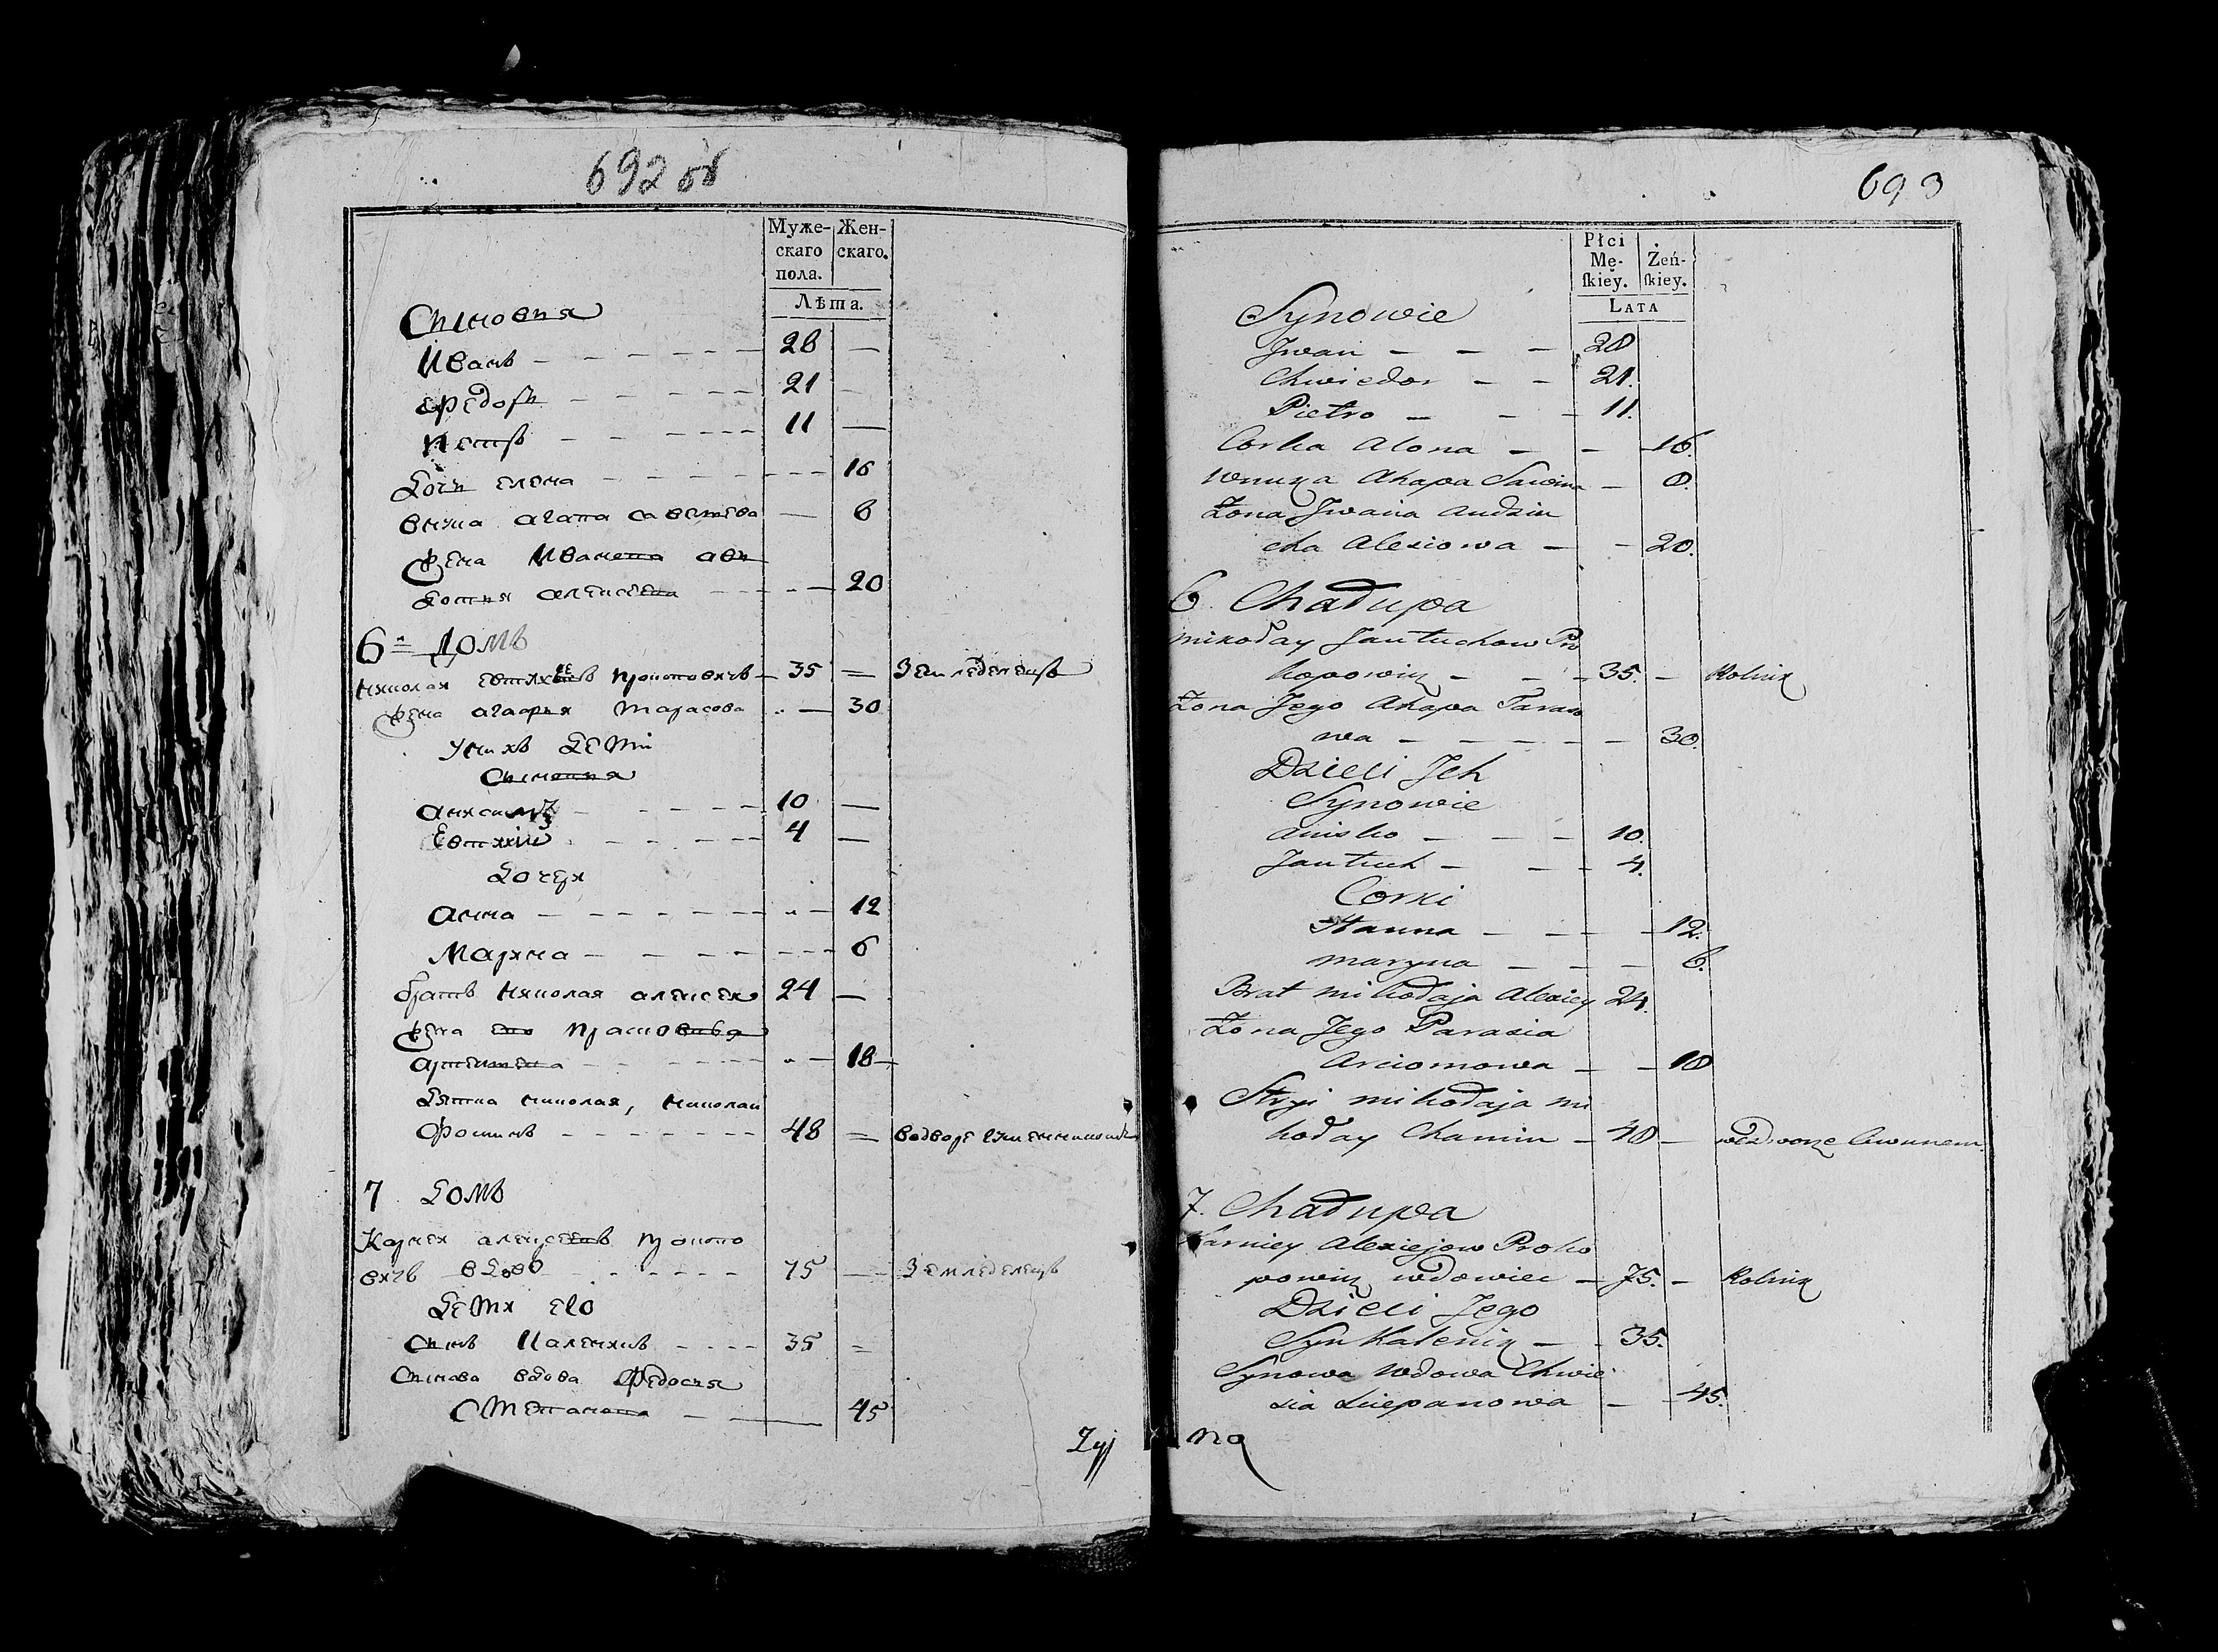 692 об
Муже-
скаго
пола.
Жен-
скаго.
Лѣта.
Сыновья
Иванъ - - - - - - 28 —
Федоръ - - - - - 21 —
Петръ - - - - - 11 —
Дочь елена - - - - - - 16
внука агапа савемева — 8
жена Иванова авъ
дотья алексеева - - - - 20
6й Домъ
Николай евтихиевъ прокоповичъ — 35 = Земледелецъ
жена агафья тарасова - — 30
У нихъ дети
Сыновья
анисимъ - - - - - 10 —
Евтихій - - - - - 4 —
Дочери
анна - - - - - - 12
Марина - - - - - - 6
братъ николая алексей 24 —
жена его прасковья
артемева - - - - - 18 —
Дятка николая, николай
Фоминъ - - - - - - 48 =
7 Домъ
Карней алексеевъ прокопо
вичъ вдовъ - - - - - 75 — Земледелецъ
Дети его
Сынъ Каленикъ - - - - 35 =
Сынова вдова Федосья
Степанова - — 45
Żyj
693
Płci
Mę-
ſkiey.
Żeń-
ſkiey.
LATA
Synowie
Jwan — — — 28
Chwiedor — — 21.
Pietro — — — 11.
Corka Alona — — 16.
wnuka Ahapa Sawina — 8.
Żona Jwana Audziu
cha Alexiowa — — 20.
6. Chałupa
Mikołay Jautuchow Pro
kopowicz — — — 35. — Rolnik
Żona Jego Ahapa Taraso
wa — — — — — 30.
Dzieci Jch
Synowie
Anisko — — — 10.
Jautuch — — — 4.
Corki
Hanna — — — 12.
Maryna — — — 6.
Brat Mikołaja Alexiey 24.
Żona Jego Parasia
Arciomowa — — 18
Stryi Mikołaja Mi
kołay Chamin — 48 — we dworze Ciwunem
7. Chałupa
Karniey Alexiejow Proko
powicz wdowiec — 75. — Rolnik
Dzieci Jego
Syn Kalenik — — 35.
Synowa wdowa Chwie
sia Sciepanowa — — 45.
na